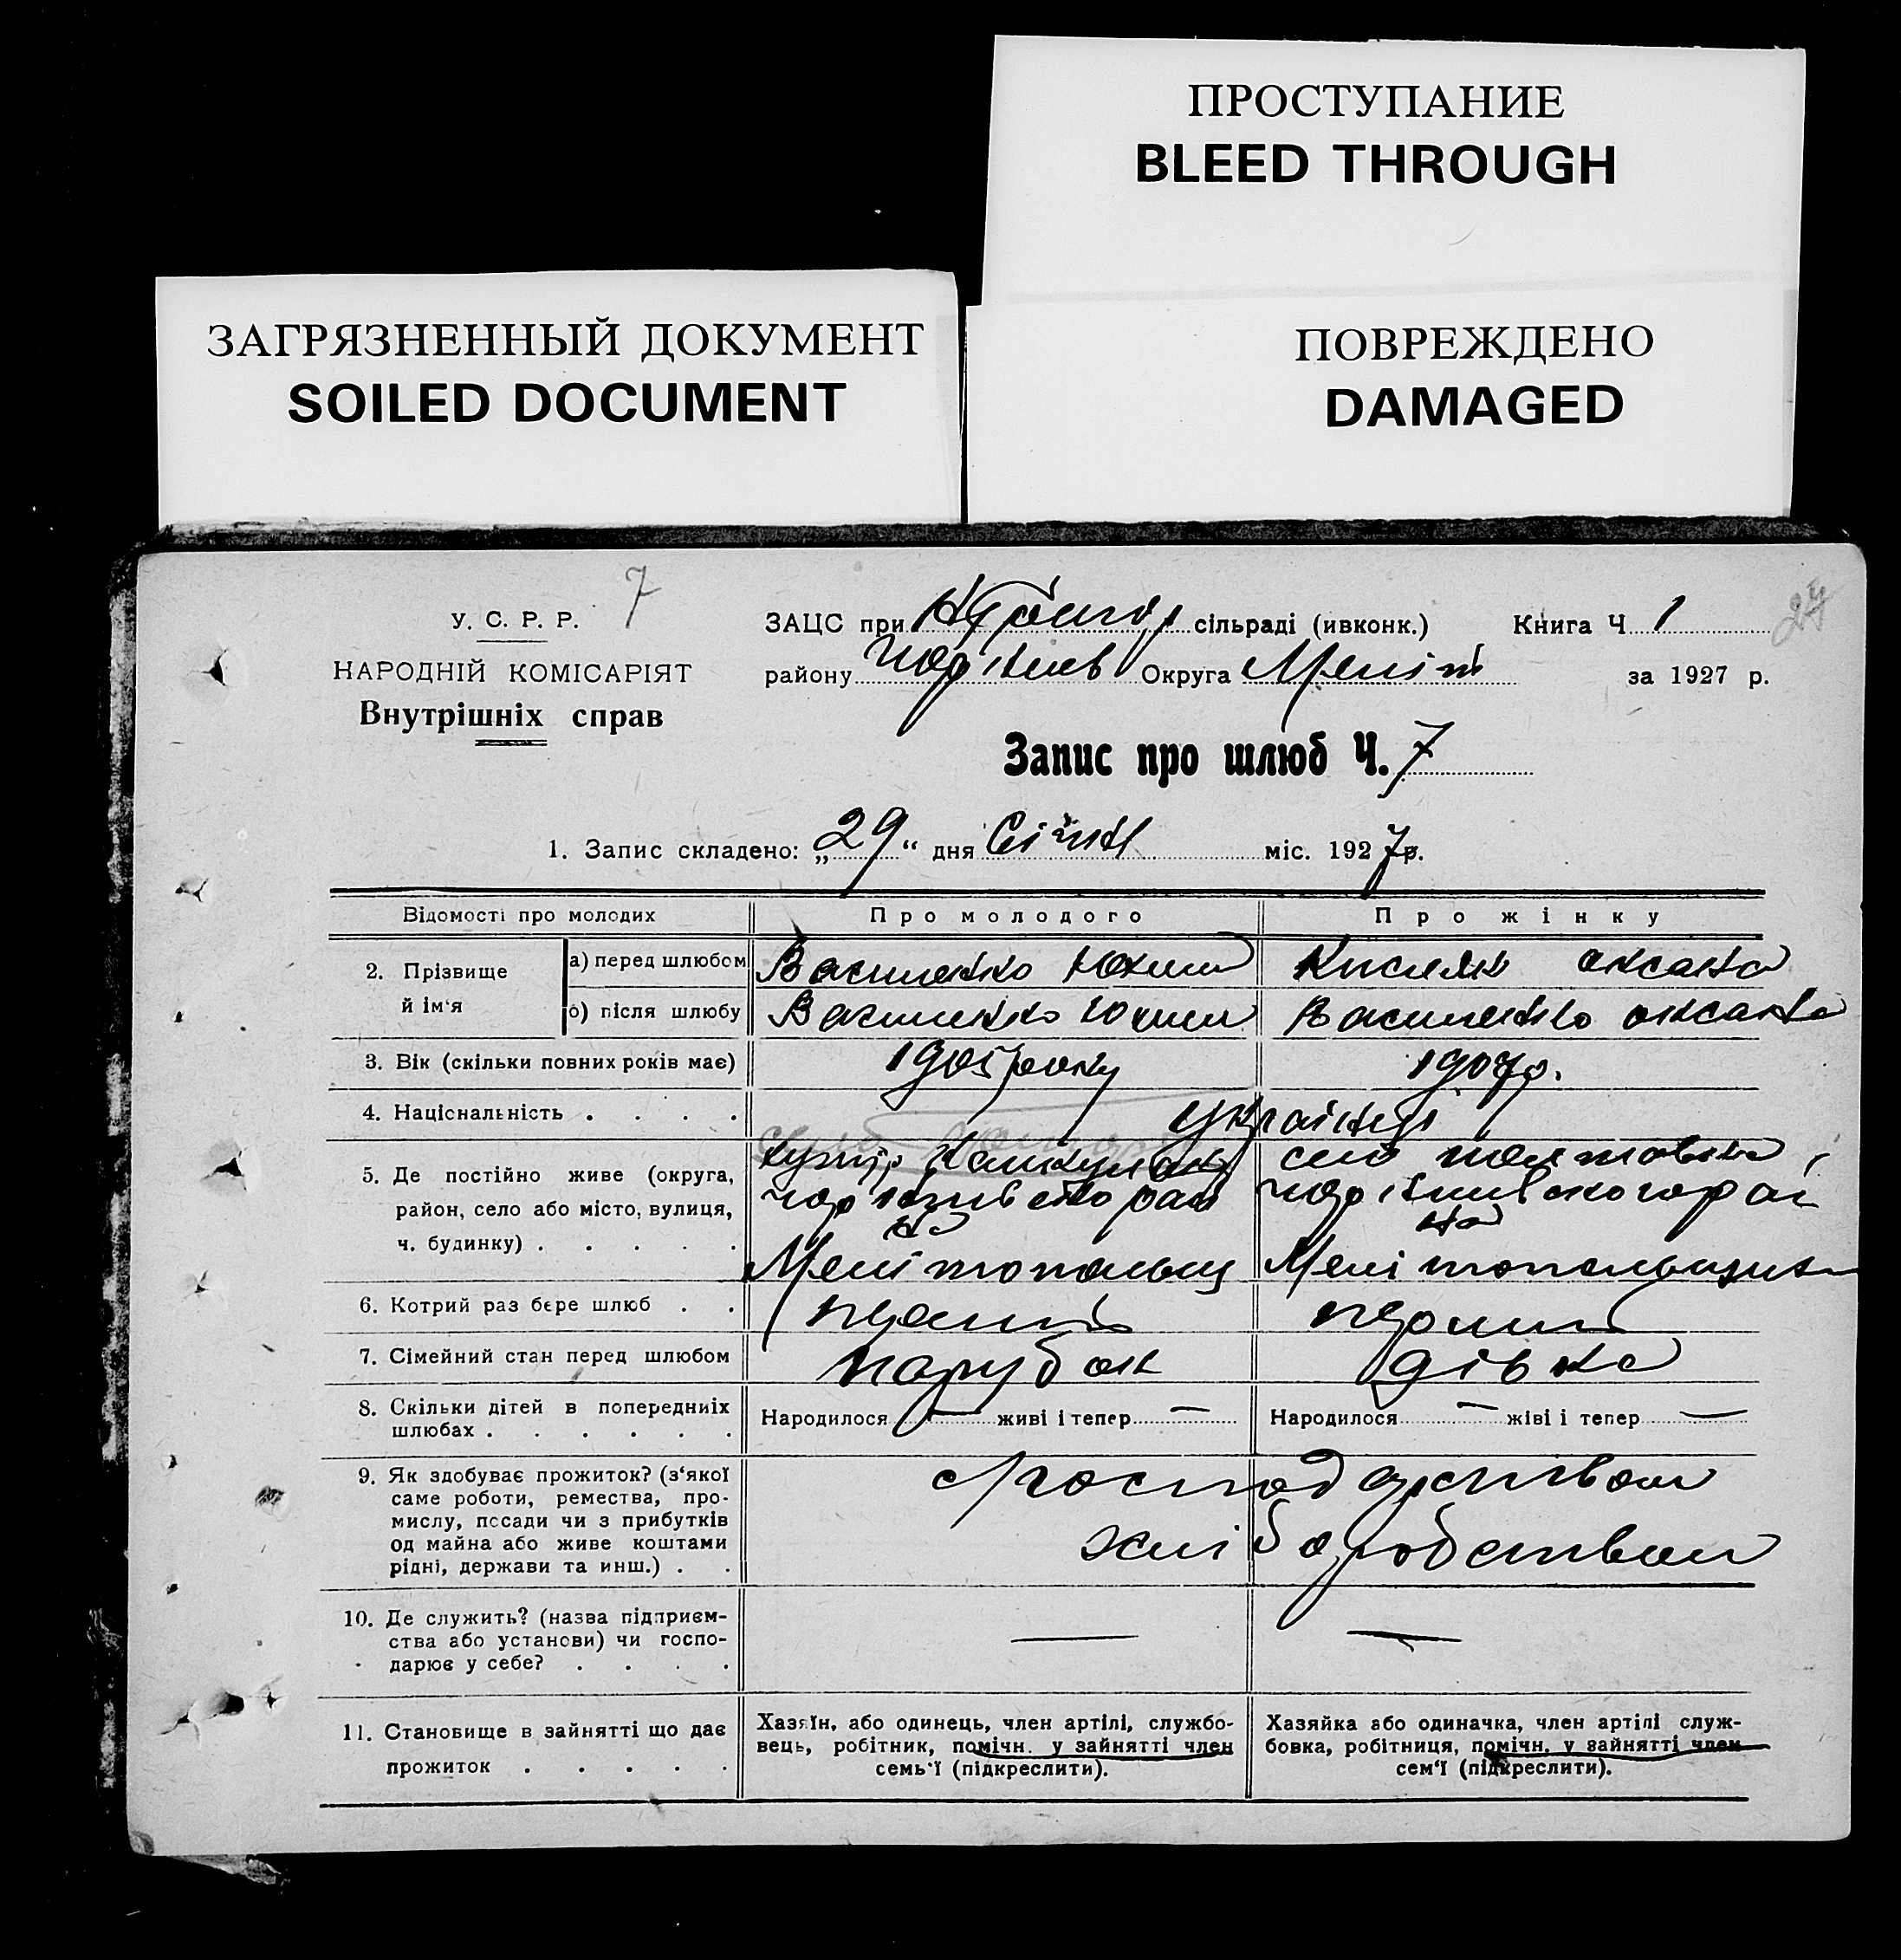 ПРОСТУПАНИЕ
BLEED THROUGH
ЗАГРЯЗНЕННЫЙ ДОКУМЕНТ
SOILED DOCUMENT
ПОВРЕЖДЕНО
DAMAGED
У. С. Р. Р. 7
НАРОДНІЙ КОМІСАРІЯТ
Внутрішніх справ
ЗАЦС при сільраді (ивконк.) Книга Ч 1 27
району Округа Меліт за 1927 р.
Запис про шлюб Ч. 7
1. Запис складено: „29“ дня Січня міс. 1927 р.
Відомості про молодих Про молодого Про жінку
2. Прізвище й ім'я а) перед шлюбом Василенко Юхим Кисиляк оксана
б) після шлюбу Василенко Юхим Василенко оксана
3. Вік (скільки повних років має) 1905 року 1907р.
4. Національність . . . . українці
5. Де постійно живе (округа, район, село або місто, вулиця, ч. будинку) . . . . .
хутір
село полтавка,
Мелітопольщ Мелітопольщина
6. Котрий раз бере шлюб . . перший перший
7. Сімейний стан перед шлюбом парубок дівка
8. Скільки дітей в попередниіх шлюбах . . . . . . Народилося — живі і тепер — Народилося — жіві і тепер —
9. Як здобуває прожиток? (з'якої саме роботи, ремества, промислу, посади чи з прибутків од майна або живе коштами рідні, держави та инш.) . .
с/господарством
хліборобством
10. Де служить? (назва підприємства або установи) чи господарює у себе? . . . . — —
11. Становище в зайнятті що дає прожиток . . . . .
Хазяїн, або одинець, член артілі, службовець, робітник, помічн. у зайнятті член семь'ї (підкреслити).
Хазяйка або одиначка, член артілі службовка, робітниця, помічн. у зайнятті член сем'ї (підкреслити).